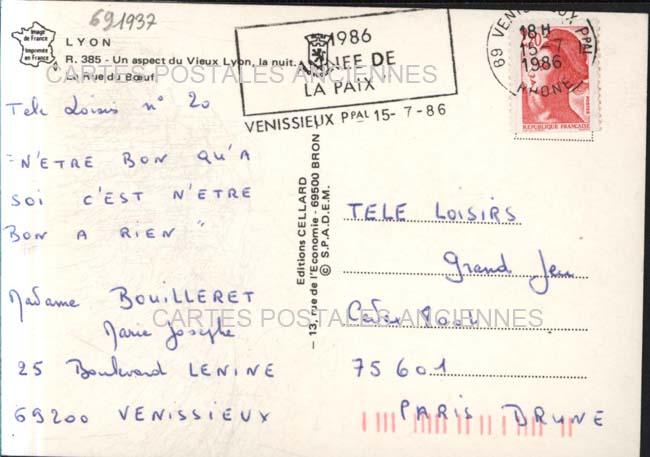 691937
Image
de France
Imprimée
en France
LYON
R. 385 - Un aspect du Vieux Lyon, la nuit.
La Rue du Bœuf
Tele Loisirs n° 20
"N'ETRE BON QU'A
SOI C'EST N'ETRE
BON A RIEN"
Madame BOUILLERET
Marie Josephe
25 Boulevard LENINE
69200 VENISSIEUX
1986
ANNEE DE
LA PAIX
VENISSIEUX PPAL 15-7-86
69 VENISSIEUX PPAL
18H
15-7
1986
RHONE
2,20
REPUBLIQUE FRANÇAISE
Editions CELLARD
— 13, rue de l'Economie - 69500 BRON
© S.P.A.D.E.M.
TELE LOISIRS
Grand Jeu
Cedex
75601
PARIS BRUNE
CARTES POSTALES ANCIENNES
CARTES POSTALES ANCIENNES